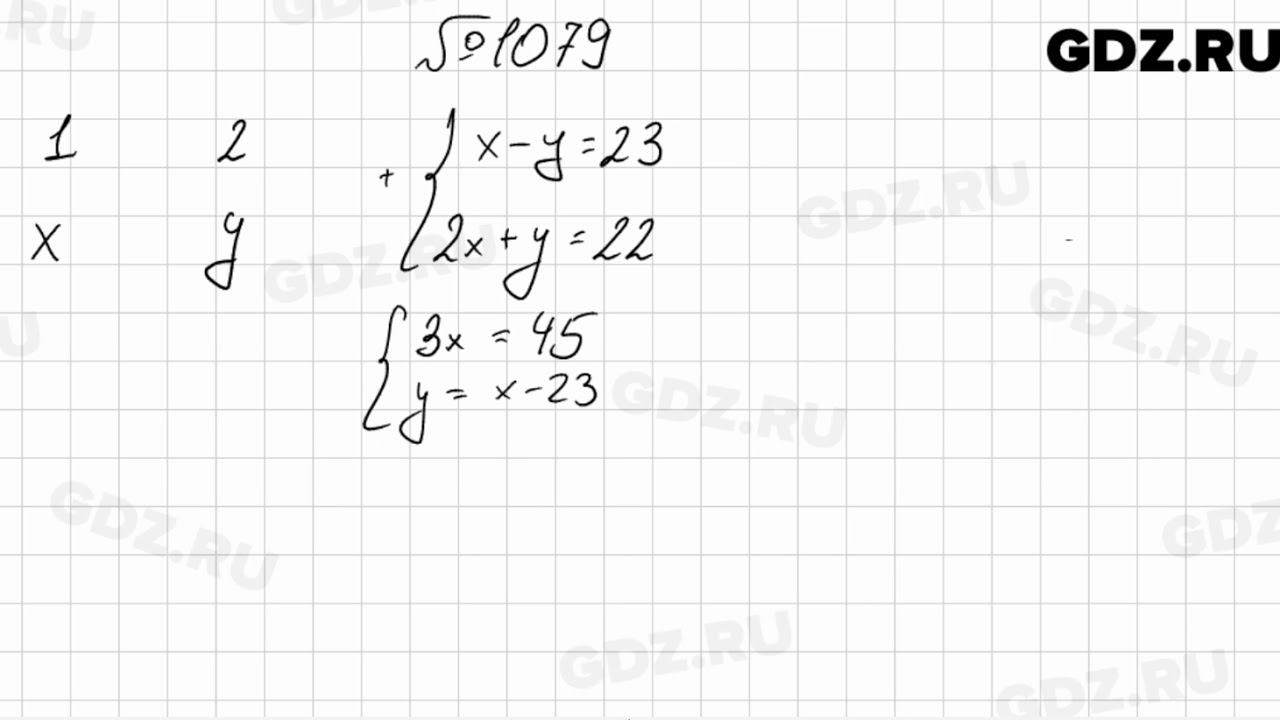 №1079
GDZ.RU
1 2
x y
+ { x - y = 23
2x + y = 22
{ 3x = 45
y = x - 23
GDZ.RU
GDZ.RU
GDZ.RU
GDZ.RU
GDZ.RU
GDZ.RU
GDZ.RU
GDZ.RU